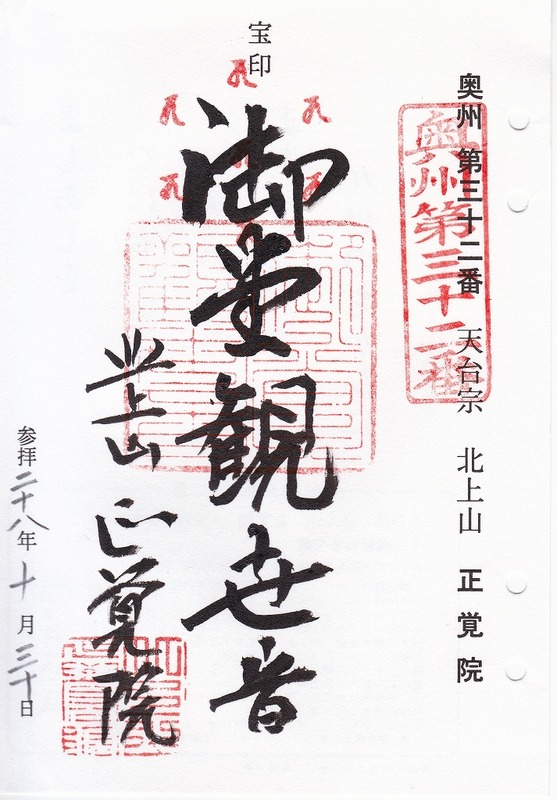 奥州第三十二番
奥州 第三十二番 天台宗 北上山 正覚院
宝印
御堂観世音
北上山 正覚院
参拝二十八年十月三十日